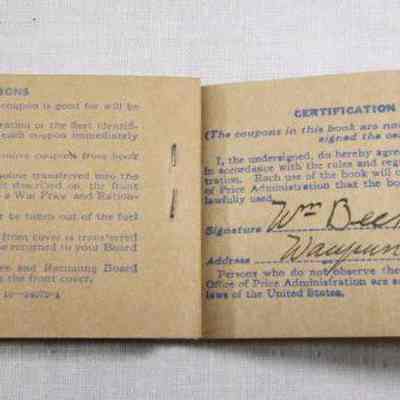 IONS
coupon is good for will be
ration or the fleet identifi-
each coupon immediately
remove coupon from book
line transferred into the
described on the front
a War Price and Ration-
be taken out of the fuel
front cover is transferred
be returned to your Board
Price and Rationing Board
the front cover.
16—34072-1
CERTIFICATION
(The coupons in this book are not
signed the
I, the undersigned, do hereby agree
in accordance with the rules and regu
tration. Each use of the book will c
of Price Administration that the bo
lawfully used.
Signature Wm
Address Waupun
Persons who do not observe the
Office of Price Administration are s
laws of the United States.